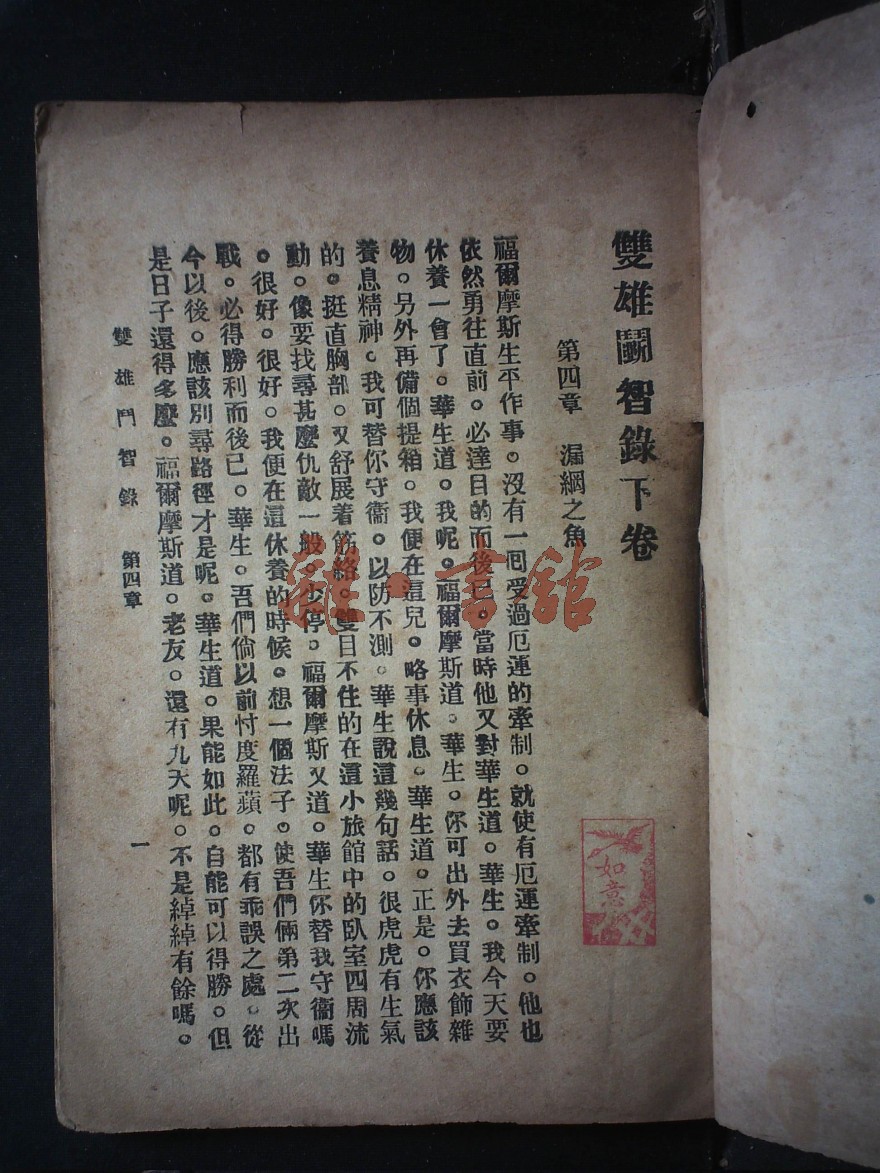 雙雄鬭智錄下卷
第四章　漏網之魚
福爾摩斯生平作事。沒有一囘受過厄運的牽制。就使有厄運牽制。他也
依然勇往直前。必達目的而後已。當時他又對華生道。華生。我今天要
休養一會了。華生道。我呢。福爾摩斯道。華生。你可出外去買衣飾雜
物。另外再備個提箱。我便在這兒。略事休息。華生道。正是。你應該
養息精神。我可替你守衞。以防不測。華生說這幾句話。很虎虎有生氣
的。挺直胸部。又舒展着筋絡。雙目不住的在這小旅館中的臥室四周流
動。像要找尋甚麽仇敵一般。少停。福爾摩斯又道。華生你替我守衞嗎
。很好。很好。我便在這休養的時候。想一個法子。使吾們倆第二次出
戰。必得勝利而後已。華生。吾們倘以前忖度羅蘋。都有乖誤之處。從
今以後。應該別尋路徑才是呢。華生道。果能如此。自能可以得勝。但
是日子還得多麽。福爾摩斯道。老友。還有九天呢。不是綽綽有餘嗎。
雙雄鬥智錄　第四章
一
如意
雜·書館